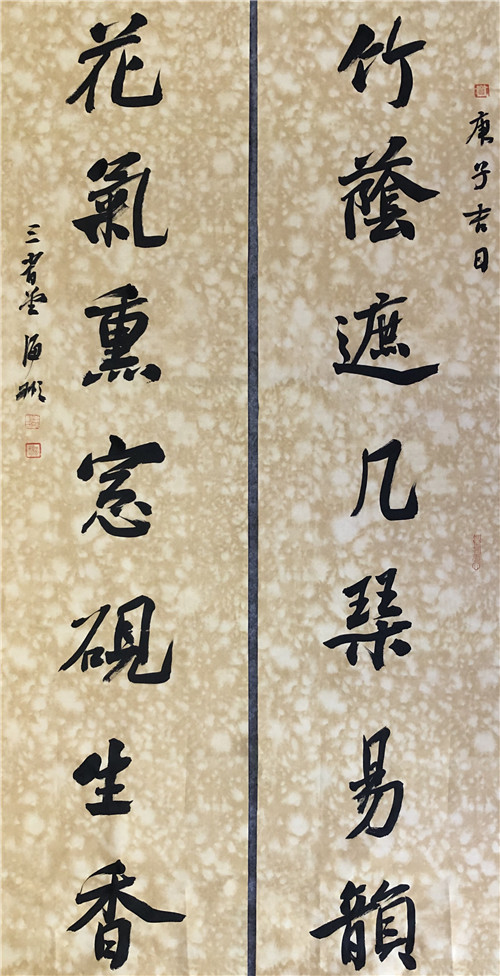 庚子吉日
竹蔭遮几琹易韻
花氣熏窓硯生香
三省堂海彬